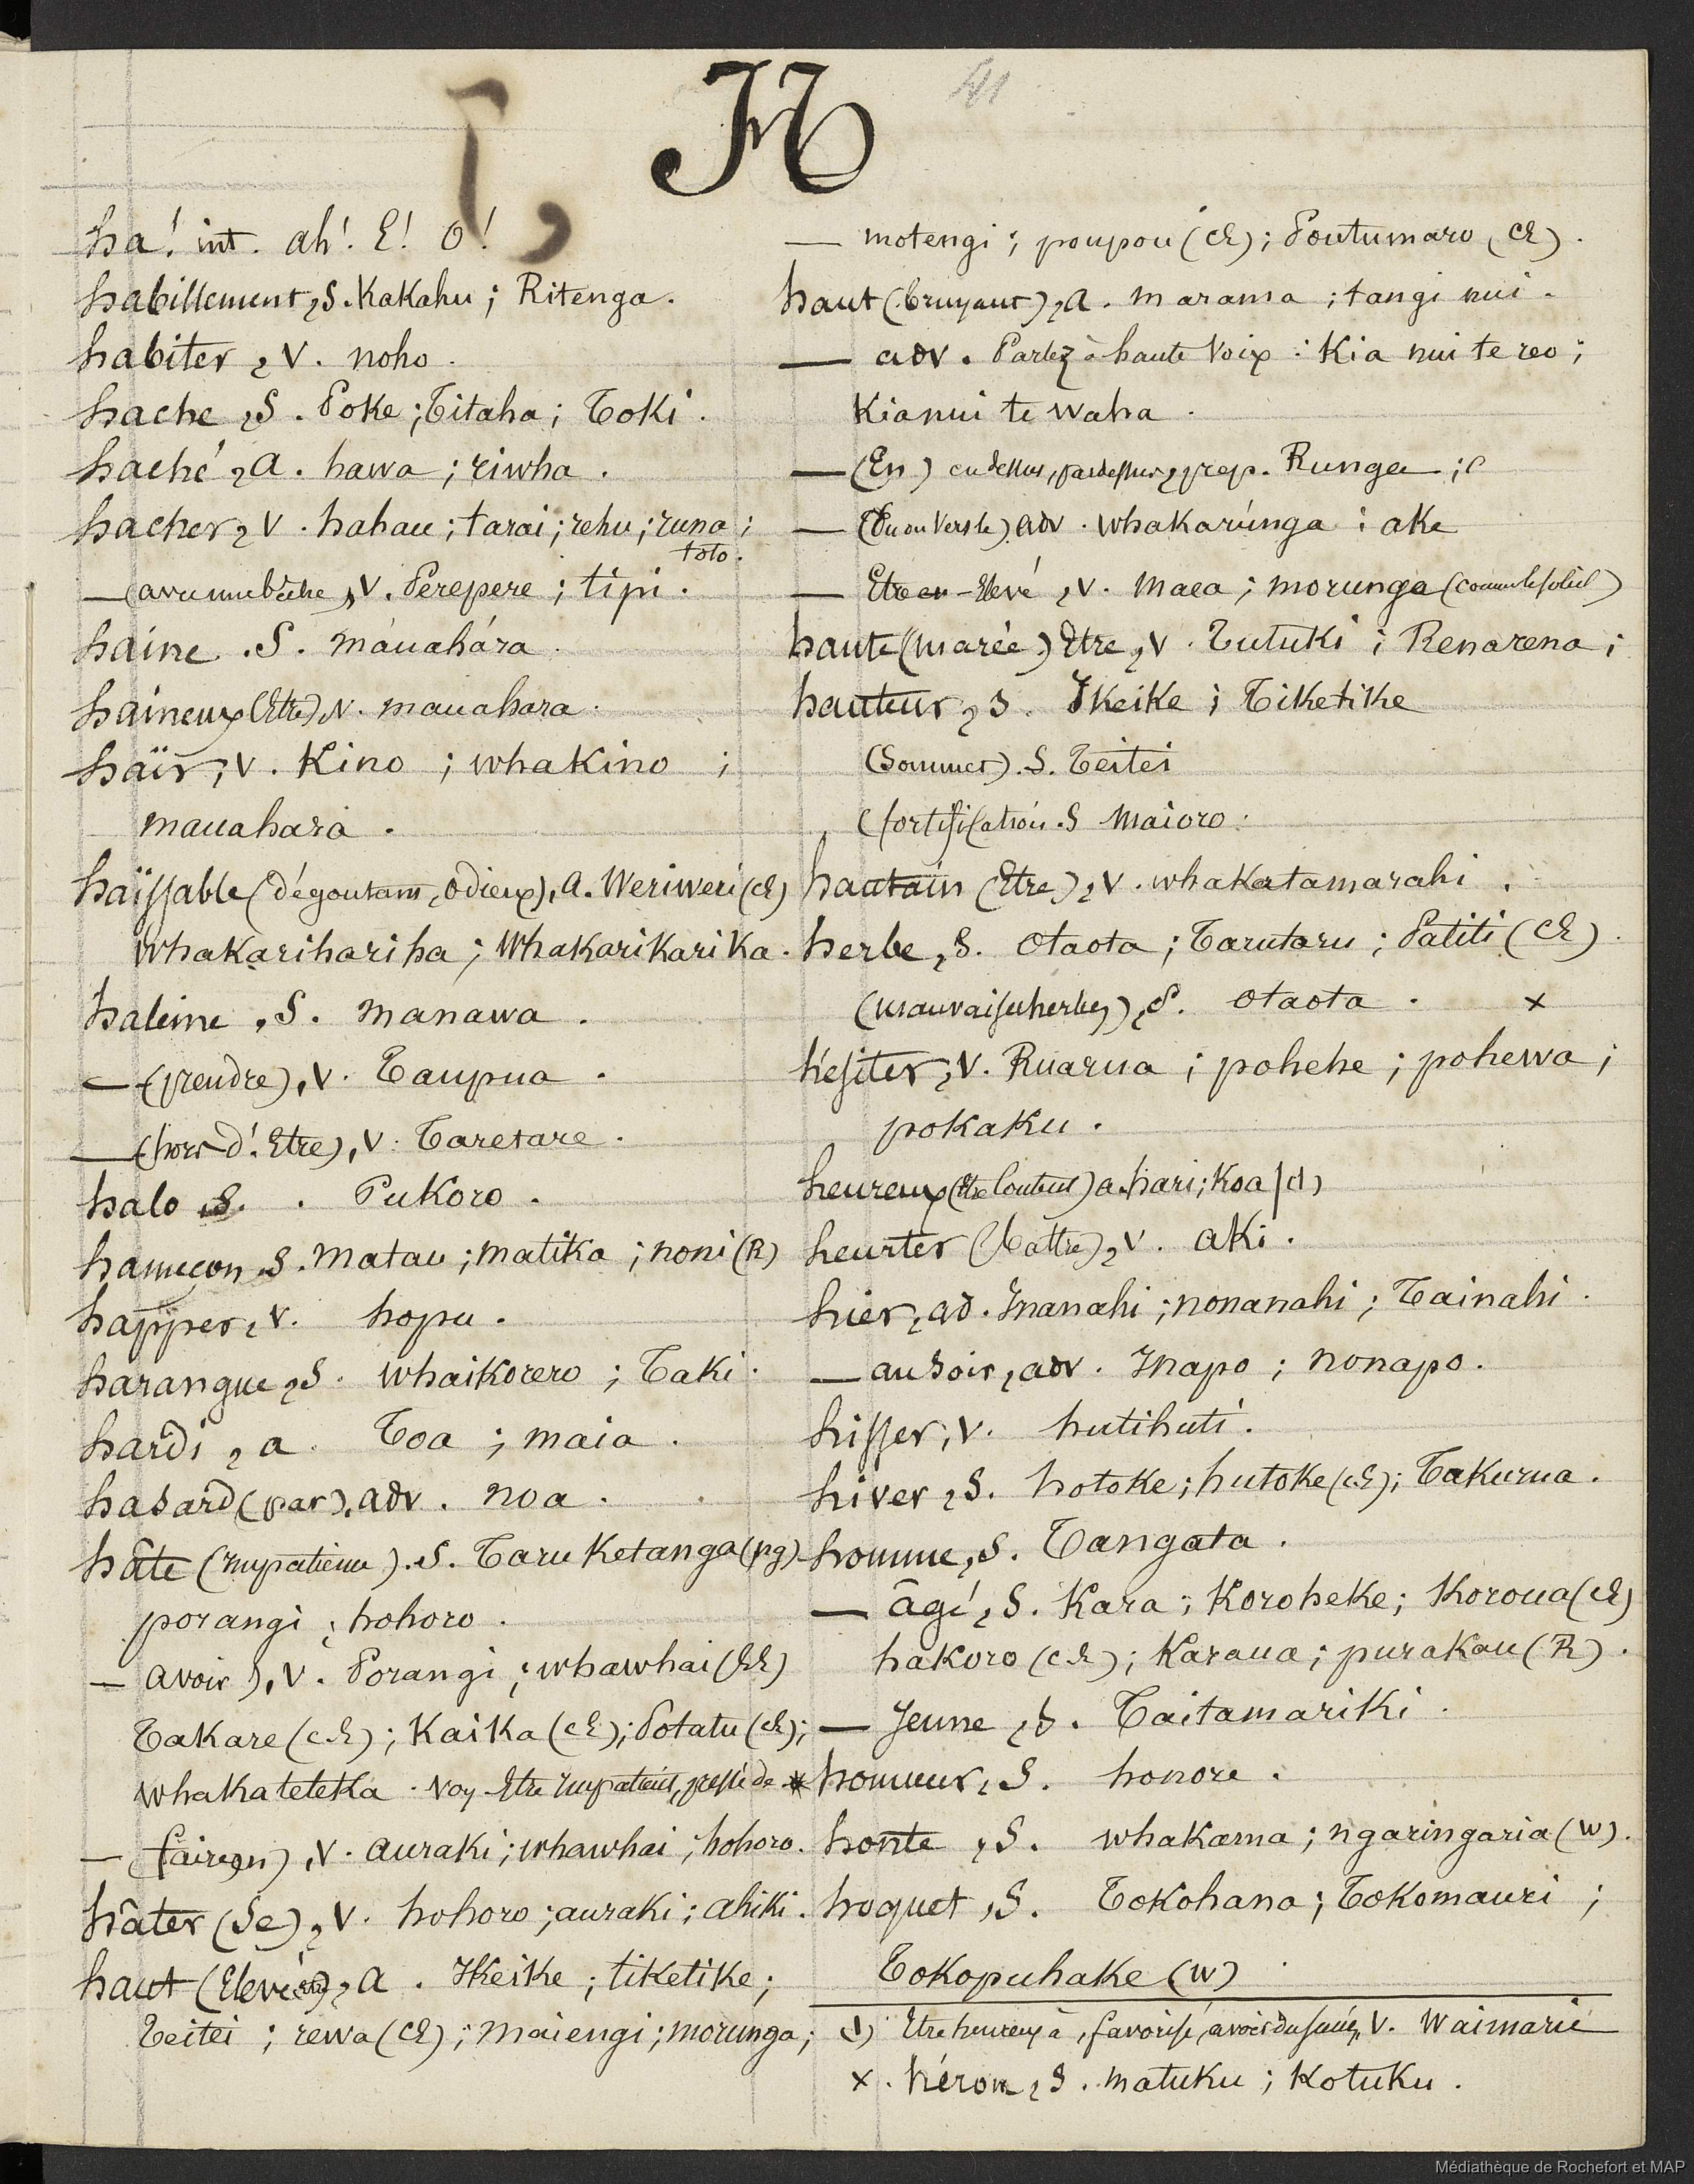 H
41
ha! int. ah! E! O!
habillement, S. Kakahu; Ritenga.
habiter, V. noho.
hache, S. Poke; Titaha; Toki.
haché, a. hawa; riwha.
hacher, V. hahau; tarai; rehu; runa;
toto.
— (avec une bêche, V. Perepere; tipi.
haine. S. máuahára.
haineux (Etre), V. mauahara.
haïr, V. Kino; whakino;
mauahara.
haïssable (dégoutant, odieux), a. Weriweri (CE)
whakarihariha; Whakarikarika.
haleine, S. manawa.
— (prendre), V. Taupua.
— (hors d'. Etre), V. Taretare.
halo S. Pukoro.
hameçon. S. matau; matika; noni (R)
happer, V. hopu.
harangue, S. whaikorero; Taki.
hardi, a. Toa; maia.
hasard (par), adv. noa.
hâte (impatience). S. Taruketanga (pg)
porangi; hohoro.
— avoir), V. Porangi; whawhai (EE)
Takare (CE); Kaika (CE); Potatu (CE);
whakateteka. Voy Etre impatient, pressé de *
— (faire en), V. auraki; whawhai; hohoro.
hâter (Se), V. hohoro; auraki; ahiki.
haut (Elevé), a. Ikeike; tiketike;
Teitei; rewa (CE); maiengi; morunga;
— motengi; poupou (CE); Poutumaro (CE).
haut (bruyant), a. marama; tangi nui.
— adv. Parlez à haute Voix: Kia nui te reo;
Kia nui te waha.
— (En) en dessus, par dessus, prep. Runga;
— (Du ou Vers le) adv. whakarúnga: ake
— Etre en - Elevé, V. Maea; morunga (comme le soleil)
haute (marée) Etre, V. Tutuki; Renarena;
hauteur, S. Ikeike; Tiketike
(Sommet). S. Teitei
(fortification. S Maioro.
hautain (Etre), V. whakatamarahi.
herbe, S. Otaota; Tarutaru; Patiti (CE).
(mauvaises herbes), S. otaota. x
hésiter, V. Ruarua; pohehe; pohewa;
pokaku.
heureux (Etre Content) a. hari; Koa (1)
heurter (battre), V. aki.
hier, ad. Inanahi; nonanahi; Tainahi.
— au Soir, adv. Inapo; nonapo.
hisser, V. hutihuti.
hiver, S. hotoke; hutoke (CE); Takurua.
homme, S. Tangata.
— âgé, S. Kara; Koroheke; Koroua (CE)
hakoro (CE); Karaua; purakau (R).
— Jeune, S. Taitamariki.
honneur, S. honore.
honte, S. whakama; ngaringaria (W).
hoquet, S. Tokohana; Tokomauri;
Tokopuhake (W)
(1) Etre heureux à, favorisé, V. Waimarie
x. héron, S. matuku; Kotuku.
Médiathèque de Rochefort et MAP